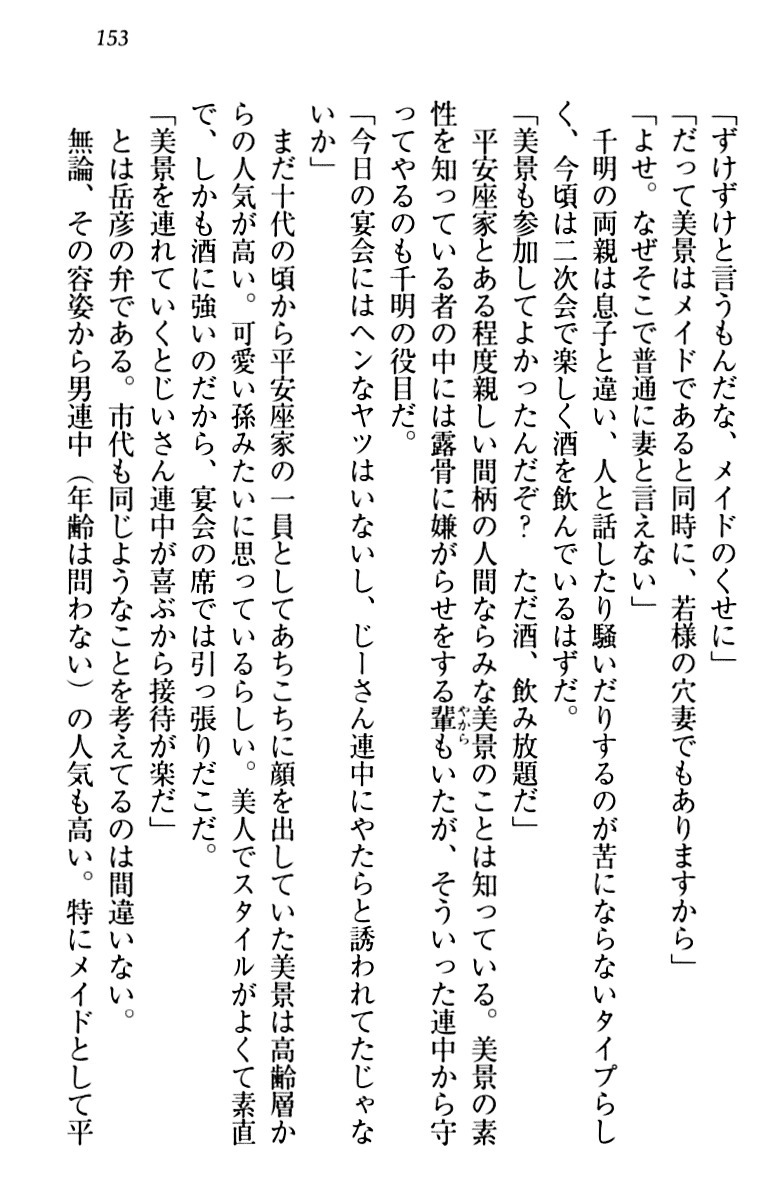 153
「ずけずけと言うもんだな、メイドのくせに」
「だって美景はメイドであると同時に、若様の穴妻でもありますから」
「よせ。なぜそこで普通に妻と言えない」
　千明の両親は息子と違い、人と話したり騒いだりするのが苦にならないタイプらし
く、今頃は二次会で楽しく酒を飲んでいるはずだ。
「美景も参加してよかったんだぞ？　ただ酒、飲み放題だ」
　平安座家とある程度親しい間柄の人間ならみな美景のことは知っている。美景の素
性を知っている者の中には露骨に嫌がらせをする輩もいたが、そういった連中から守
やから
ってやるのも千明の役目だ。
「今日の宴会にはヘンなヤツはいないし、じーさん連中にやたらと誘われてたじゃな
いか」
　まだ十代の頃から平安座家の一員としてあちこちに顔を出していた美景は高齢層か
らの人気が高い。可愛い孫みたいに思っているらしい。美人でスタイルがよくて素直
で、しかも酒に強いのだから、宴会の席では引っ張りだこだ。
「美景を連れていくとじいさん連中が喜ぶから接待が楽だ」
　とは岳彦の弁である。市代も同じようなことを考えてるのは間違いない。
　無論、その容姿から男連中（年齢は問わない）の人気も高い。特にメイドとして平